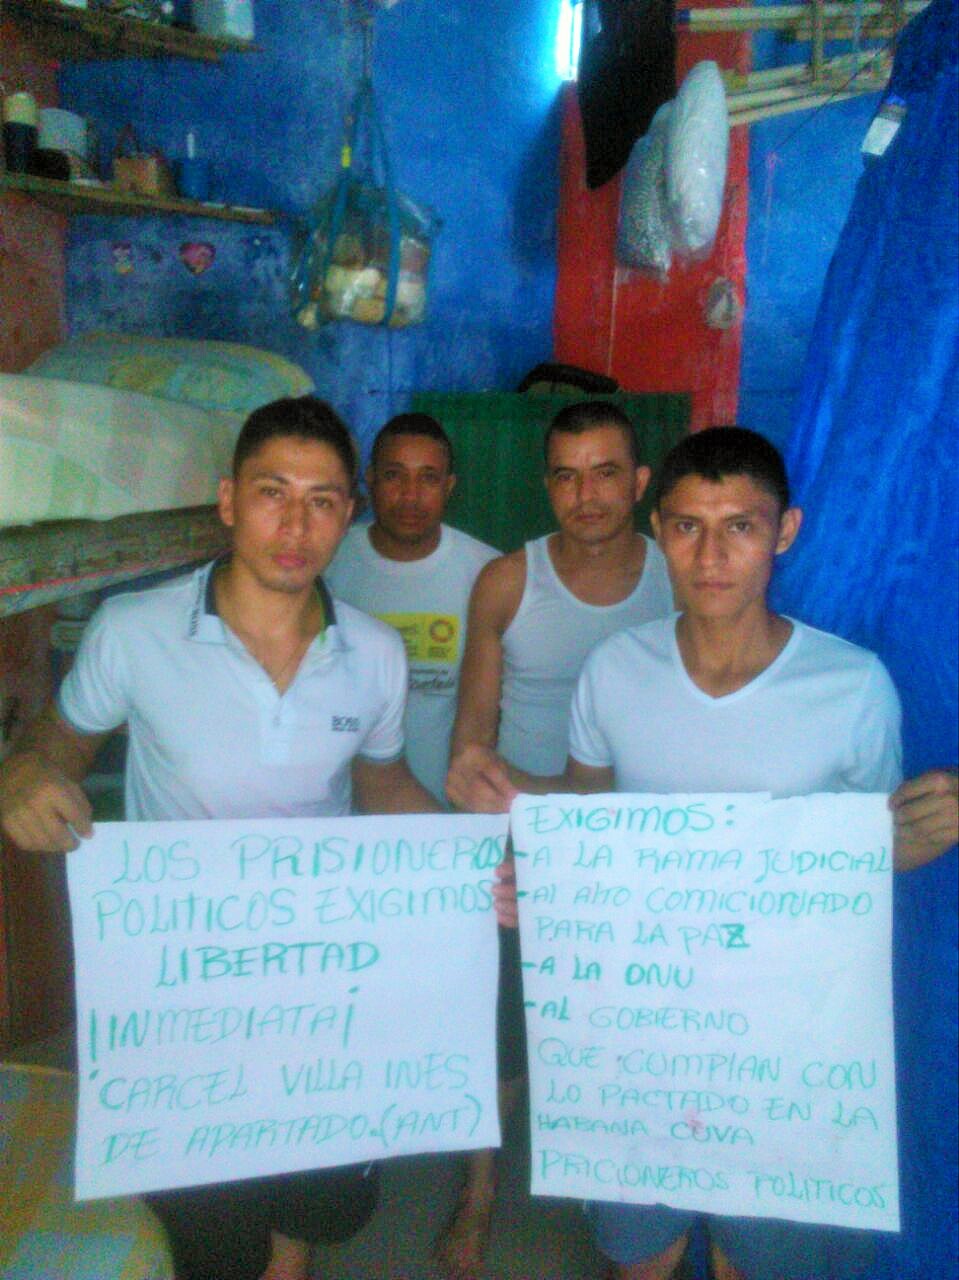 LOS PRISIONEROS
POLITICOS EXIGIMOS
LIBERTAD
¡INMEDIATA¡
CARCEL VILLA INES
DE APARTADO.(ANT)
EXIGIMOS:
-A LA RAMA JUDICIAL
-Al Alto COMICIONADO
PARA LA PAZ
-A LA ONU
-AL GOBIERNO
QUE CUMPLAN CON
LO PACTADO EN LA
HABANA CUVA
PRICIONEROS POLITICOS
BOSS